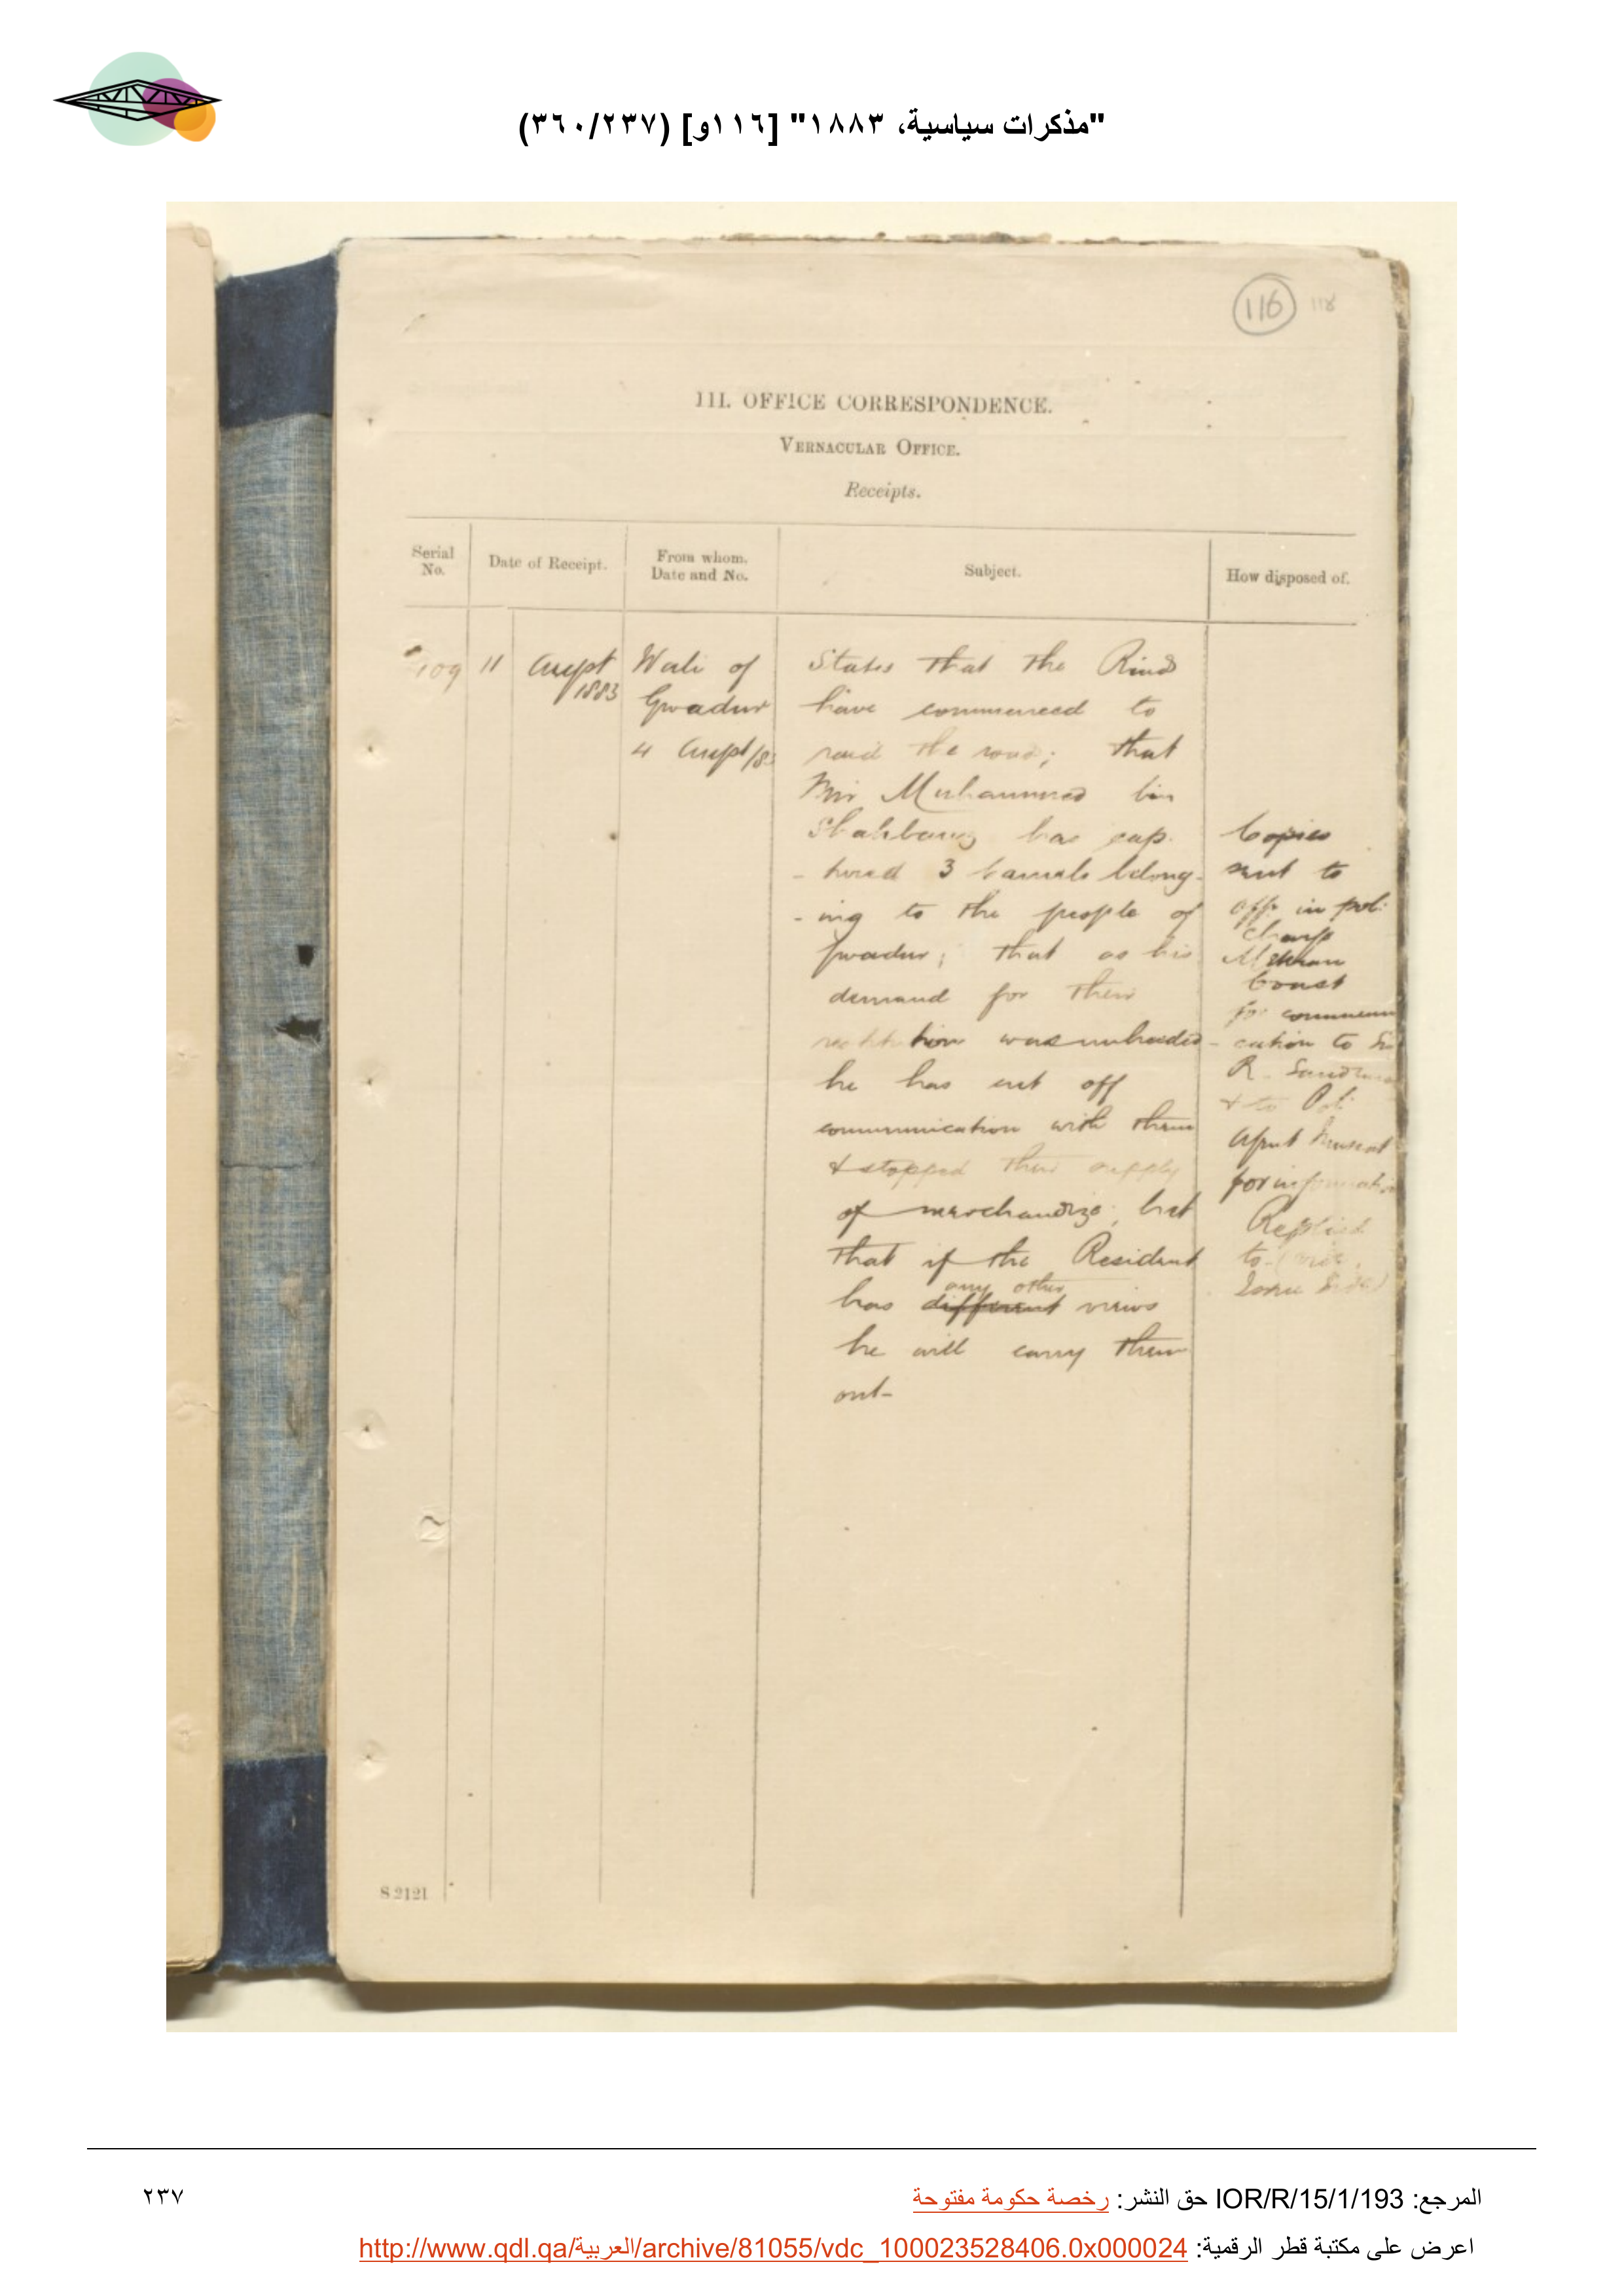 "مذكرات سياسية، ١٨٨٣" [١١٦و] (٢٣٧/٣٦٠)
116 118
III. OFFICE CORRESPONDENCE.
VERNACULAR OFFICE.
Receipts.
Serial No.
Date of Receipt.
From whom. Date and No.
Subject.
How disposed of.
109
11 August 1883
Wali of
Gwadur
4 August/83
States that the Rinds
have commenced to
raid the road; that
Mir Muhammad bin
Shahbaug has cap-
-tured 3 camels belong-
-ing to the people of
Gwadur; that as his
demand for their
restitution was unheeded
he has cut off
communication with them
& stopped their supply
of merchandize; but
that if the Resident
any other
has different views
he will carry them
out-
Copies
sent to
offr in pol:
charge
Mekran
Coast
for communi
-cation to Sir
R. Sandeman
& to Pol:
Agent Muscat
for information
Replied
to
S 2121
المرجع: IOR/R/15/1/193 حق النشر: رخصة حكومة مفتوحة
٢٣٧
اعرض على مكتبة قطر الرقمية: http://www.qdl.qa/العربية/archive/81055/vdc_100023528406.0x000024